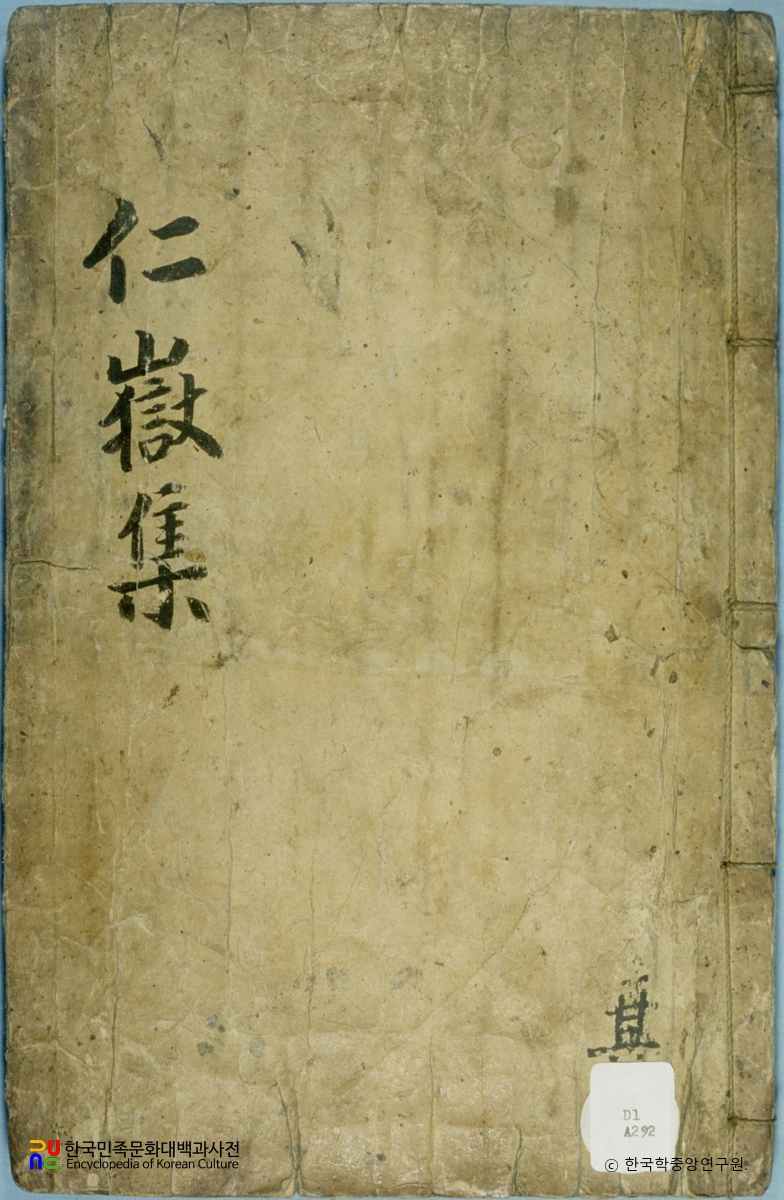 仁嶽集
D1
A292
한국민족문화대백과사전
Encyclopedia of Korean Culture
ⓒ 한국학중앙연구원